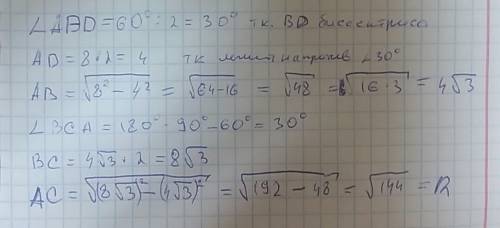 ∠ABD = 60° : 2 = 30° т.к. BD биссектриса
AD = 8 : 2 = 4 тк лежит напротив ∠30°
AB = √(8² - 4²) = √(64-16) = √48 = √(16·3) = 4√3
∠BCA = 180° - 90° - 60° = 30°
BC = 4√3 · 2 = 8√3
AC = √((8√3)² - (4√3)²) = √(192 - 48) = √144 = 12